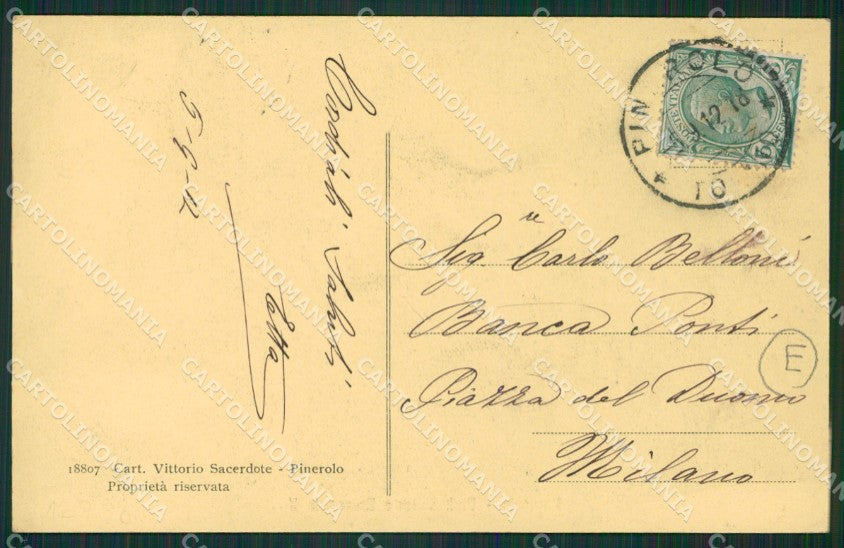 5-9-12
Cordiali Saluti
PINEROLO
12.16
TO
Sig.re Carlo Belloni
Banca Ponti
Piazza del Duomo
Milano
E
18807 Cart. Vittorio Sacerdote - Pinerolo
Proprietà riservata
CARTOLINOMANIA